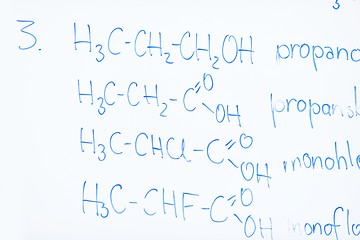 3. H₃C-CH₂-CH₂OH propano
H₃C-CH₂-C=O OH
H₃C-CHCl-C=O OH monohl
H₃C-CHF-C=O OH monofl